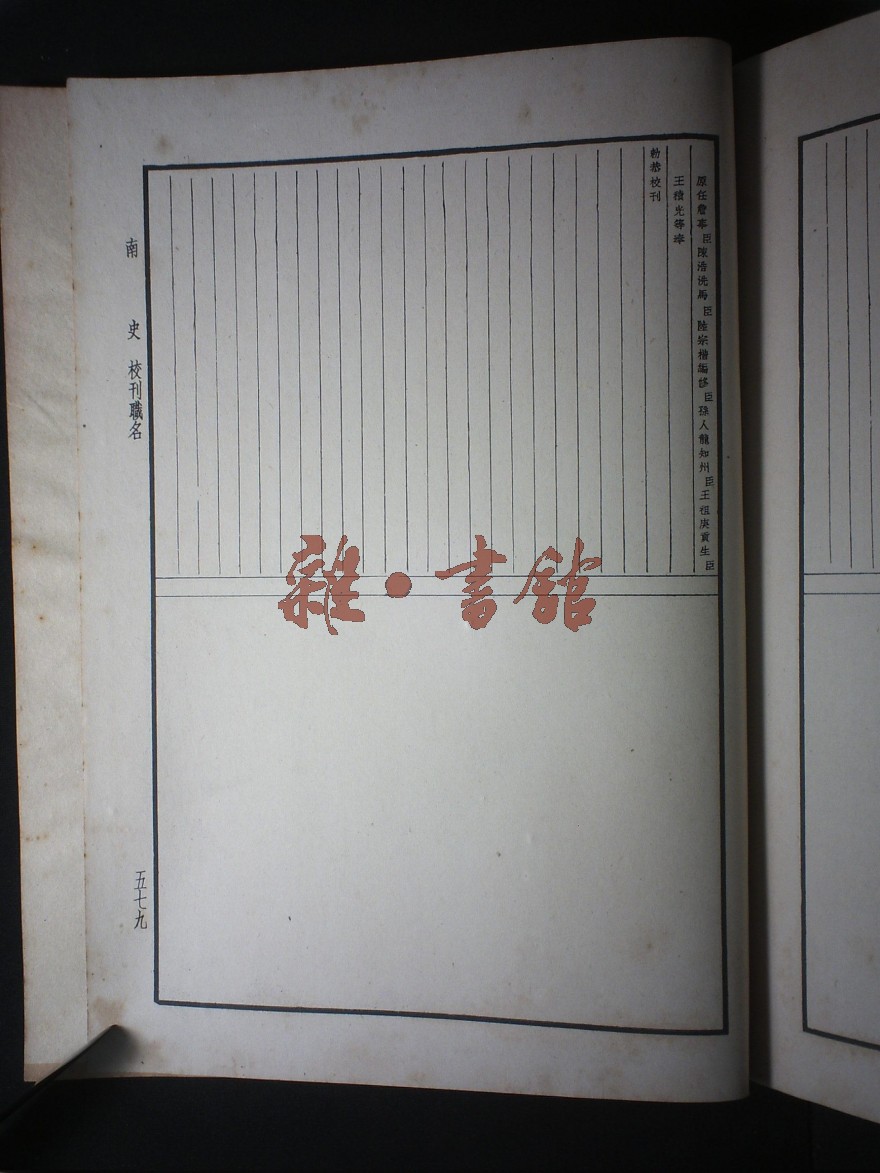 原任詹事臣陳浩洗馬臣陸宗楷編修臣孫人龍知州臣王祖庚貢生臣
王積光等奉
勅恭校刊
南史 校刊職名
五七九
雜·書館